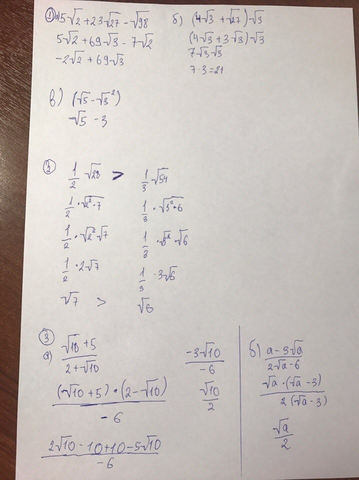 ① а) 5√2 + 23√27 - √98
5√2 + 69√3 - 7√2
-2√2 + 69√3
б) (4√3 + √27)·√3
(4√3 + 3√3)·√3
7√3·√3
7·3=21
в) (√5 - √3²)
√5 - 3
②
1/2 √28 > 1/3 √54
1/2 · √2²·7 1/3 · √3²·6
1/2 · √2²·√7 1/3 · √3²·√6
1/2 · 2√7 1/3 · 3√6
√7 > √6
③
а) (√10 + 5)/(2 + √10)
((√10 + 5)·(2 - √10))/-6
(2√10 - 10 + 10 - 5√10)/-6
-3√10/-6
√10/2
б) (a - 3√a)/(2√a - 6)
(√a·(√a - 3))/(2(√a - 3))
√a/2